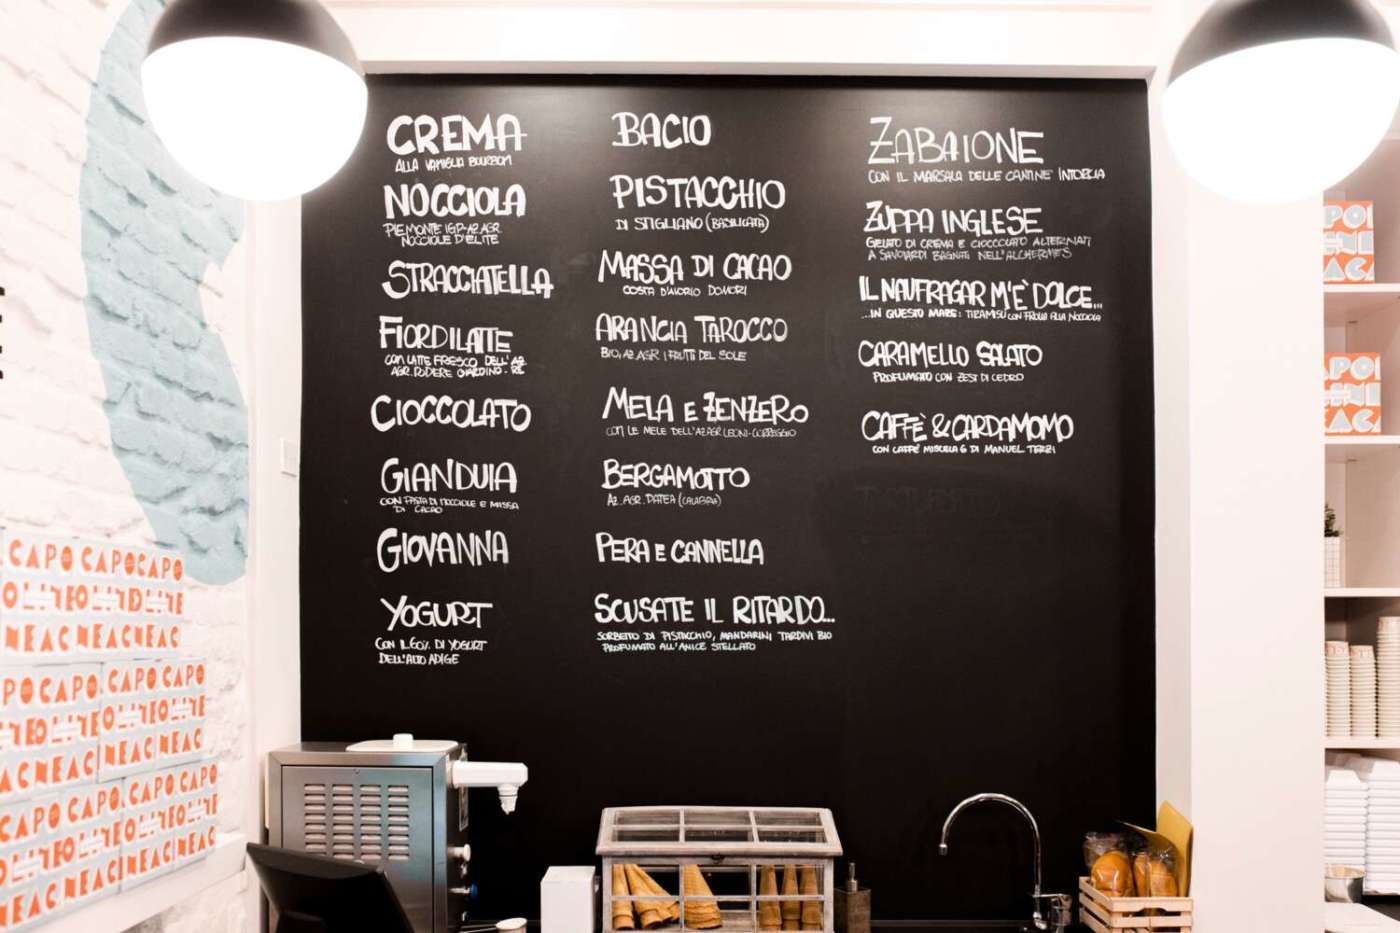 CREMA
ALLA VANIGLIA BOURBON
NOCCIOLA
PIEMONTE IGP-AZ.AGR.
NOCCIOLE D'ELITE
STRACCIATELLA
FIORDILATTE
CON LATTE FRESCO DELL'AZ
AGR. PODERE GIARDINO - RE
CIOCCOLATO
GIANDUIA
CON PASTA DI NOCCIOLE E MASSA
DI CACAO
GIOVANNA
YOGURT
CON IL 60% DI YOGURT
DELL'ALTO ADIGE
BACIO
PISTACCHIO
DI STIGLIANO (BASILICATA)
MASSA DI CACAO
COSTA D'AVORIO DOMORI
ARANCIA TAROCCO
BIO, AZ.AGR. I FRUTTI DEL SOLE
MELA E ZENZERO
CON LE MELE DELL'AZ.AGR LEONI-CORREGGIO
BERGAMOTTO
AZ. AGR. PATEA (CALABRIA)
PERA E CANNELLA
SCUSATE IL RITARDO...
SORBETTO DI PISTACCHIO, MANDARINI TARDIVI BIO
PROFUMATO ALL'ANICE STELLATO
ZABAIONE
CON IL MARSALA DELLE CANTINE INTORCIA
ZUPPA INGLESE
GELATO DI CREMA E CIOCCOLATO ALTERNATI
A SAVOIARDI BAGNATI NELL'ALCHERMES
IL NAUFRAGAR M'È DOLCE...
...IN QUESTO MARE: TIRAMISU CON FROLLA ALLA NOCCIOLA
CARAMELLO SALATO
PROFUMATO CON ZEST DI CEDRO
CAFFÈ & CARDAMOMO
CON CAFFÈ MISCELA 6 DI MANUEL TERZI
CAPO CAPO CAPO
NEAC NEAC NEAC
CAPO CAPO
NEAC NEAC
CAPO CAPO CAPO CAPO
NEAC NEAC NEAC